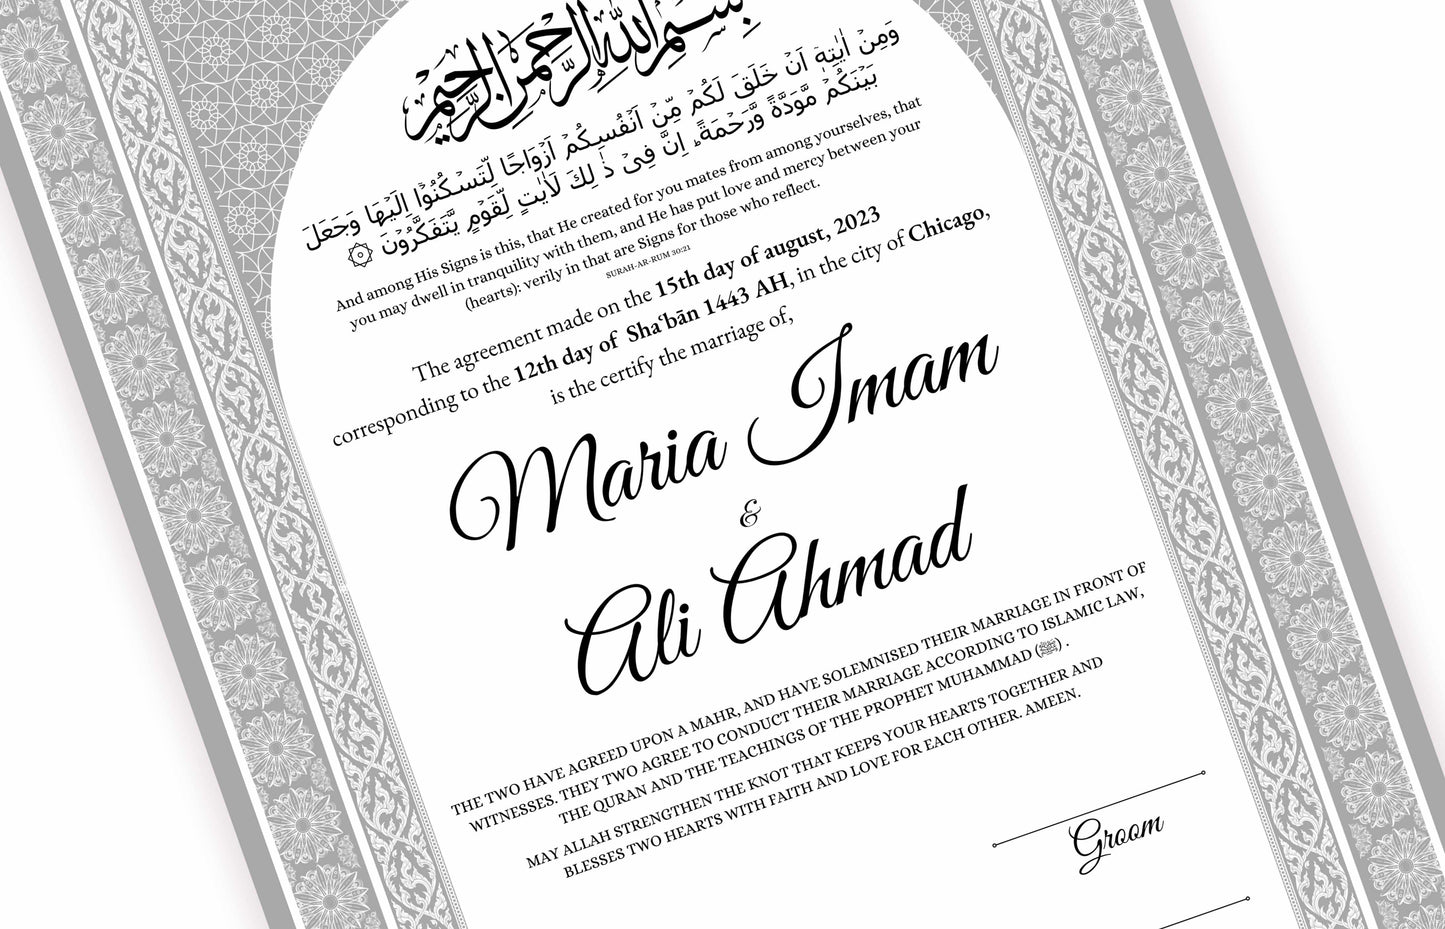 بسم الله الرحمن الرحيم
وَمِنْ اٰيٰتِهٖٓ اَنْ خَلَقَ لَكُمْ مِّنْ اَنْفُسِكُمْ اَزْوَاجًا لِّتَسْكُنُوْٓا اِلَيْهَا وَجَعَلَ
بَيْنَكُمْ مَّوَدَّةً وَّرَحْمَةً ؕ اِنَّ فِىْ ذٰ لِكَ لَاٰيٰتٍ لِّقَوْمٍ يَّتَفَكَّرُوْنَ ۞
And among His Signs is this, that He created for you mates from among yourselves, that
you may dwell in tranquility with them, and He has put love and mercy between your
(hearts): verily in that are Signs for those who reflect.
SURAH-AR-RUM 30:21
The agreement made on the 15th day of august, 2023
corresponding to the 12th day of Sha‘bān 1443 AH, in the city of Chicago,
is the certify the marriage of,
Maria Imam
&
Ali Ahmad
THE TWO HAVE AGREED UPON A MAHR, AND HAVE SOLEMNISED THEIR MARRIAGE IN FRONT OF
WITNESSES. THEY TWO AGREE TO CONDUCT THEIR MARRIAGE ACCORDING TO ISLAMIC LAW,
THE QURAN AND THE TEACHINGS OF THE PROPHET MUHAMMAD (ﷺ) .
MAY ALLAH STRENGTHEN THE KNOT THAT KEEPS YOUR HEARTS TOGETHER AND
BLESSES TWO HEARTS WITH FAITH AND LOVE FOR EACH OTHER. AMEEN.
Groom